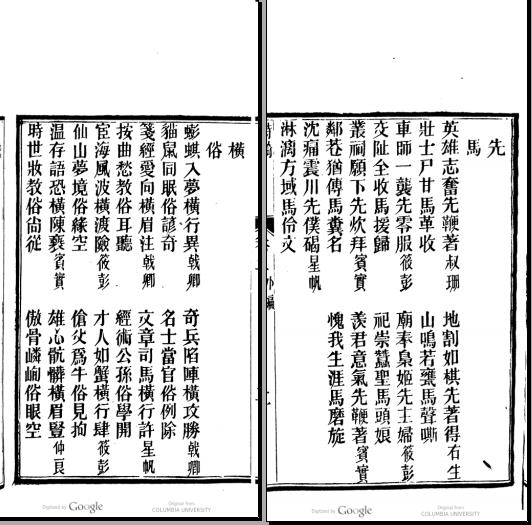 先
馬
英雄志奮先鞭著叔珊　地割如棋先著得右生
壯士尸甘馬革收　山鳴若甕馬聲嘶
車師一襲先零服筱彭　廟奉梟姬先主婦筱彭
交阯全收馬援歸　祀崇蠶聖馬頭娘
叢祠願下先炊拜賓實　羨君意氣先鞭著賓實
鄰巷猶傳馬糞名　愧我生涯馬磨旋
沈痛震川先僕碣星帆
淋漓方域馬伶文
橫
俗
蟛蜞入夢橫行異戟卿　奇兵陷陣橫攻勝戟卿
貓鼠同眠俗諺奇　名士當官俗例除
箋經愛向橫眉注戟卿　文章司馬橫行許星帆
按曲愁教俗耳聽　經術公孫俗學開
宦海風波橫渡險筱彭　才人如蟹橫行肆筱彭
仙山夢境俗緣空　傖父爲牛俗見拘
温存語恐橫陳褻賓實　雄心骯髒橫眉豎仲良
時世妝教俗尙從　傲骨嶙峋俗眼空
Digitized by Google
Original from
COLUMBIA UNIVERSITY
Digitized by Google
Original from
COLUMBIA UNIVERSITY